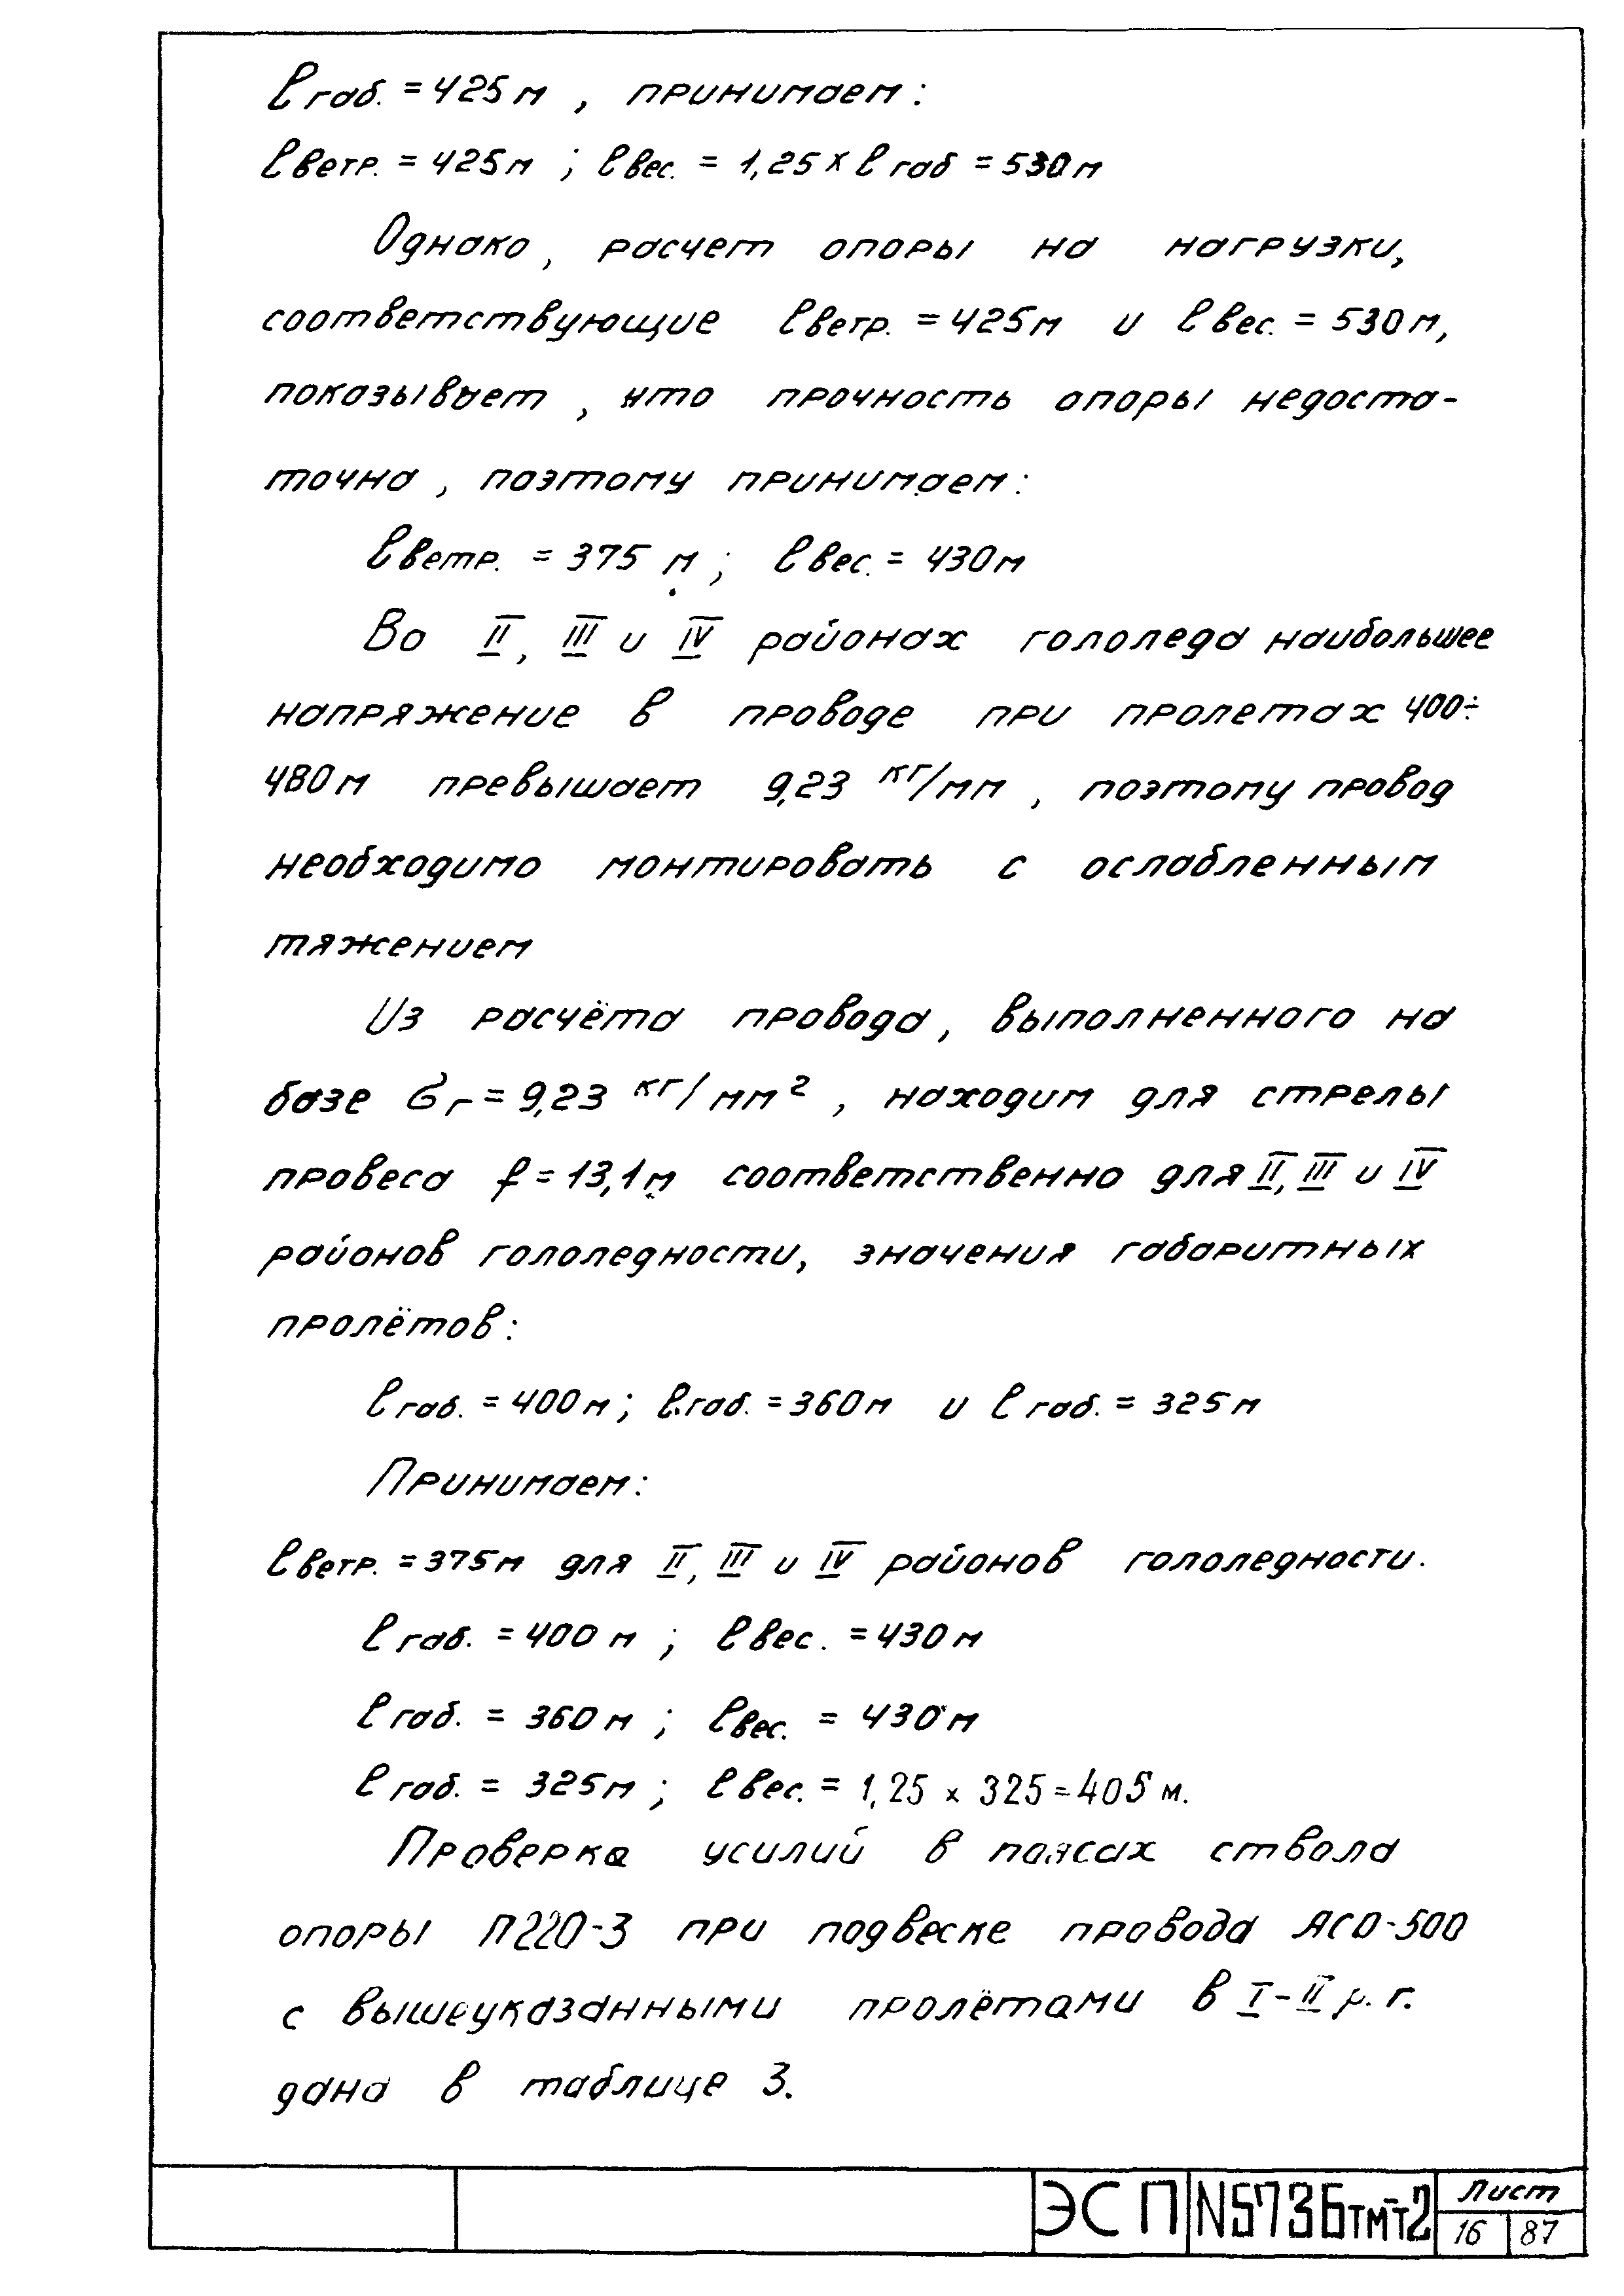 ℓгаб. = 425 м , принимаем:
ℓветр. = 425м ; ℓвес. = 1,25 × ℓгаб = 530 м
Однако, расчет опоры на нагрузки,
соответствующие ℓветр. = 425м и ℓвес. = 530 м,
показывает, что прочность опоры недоста-
точна, поэтому принимаем:
ℓветр. = 375 м ; ℓвес. = 430м
Во II, III и IV районах гололеда наибольшее
напряжение в проводе при пролетах 400÷
480м превышает 9,23 кг/мм , поэтому провод
необходимо монтировать с ослабленным
тяжением
Из расчёта провода, выполненного на
базе бг = 9,23 кг/мм² , находим для стрелы
провеса f = 13,1м соответственно для II, III и IV
районов гололедности, значения габаритных
пролётов:
ℓгаб. = 400м ; ℓгаб. = 360м и ℓгаб. = 325м
Принимаем:
ℓветр. = 375м для II, III и IV районов гололедности.
ℓгаб. = 400 м ; ℓвес. = 430 м
ℓгаб. = 360 м ; ℓвес. = 430 м
ℓгаб. = 325м ; ℓвес. = 1,25 × 325 = 405 м.
Проверка усилий в поясах ствола
опоры П220-3 при подвеске провода АСО-500
с вышеуказанными пролётами в I-II р. г.
дана в таблице 3.
ЭСП N5736тм-т2 Лист
16 87